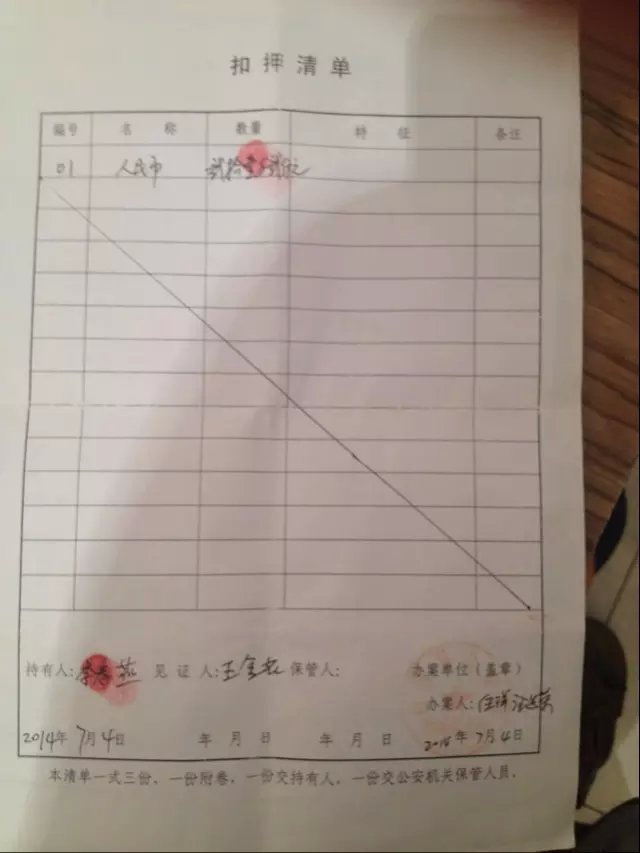 扣押清单
编号 名称 数量 特征 备注
01 人民币
持有人: 燕 见证人: 王 保管人: 办案单位(盖章)
办案人:
2014年7月4日 年 月 日 年 月 日 年7月4日
本清单一式三份，一份附卷，一份交持有人，一份交公安机关保管人员。